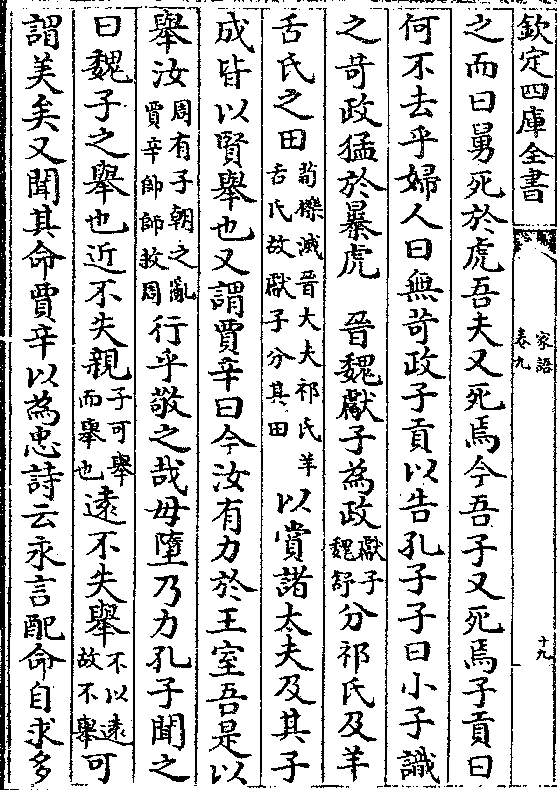 欽定四庫全書
家語
卷九
十九
之而曰舅死於虎吾夫又死焉今吾子又死焉子貢曰
何不去乎婦人曰無苛政子貢以告孔子子曰小子識
之苛政猛於暴虎 晉魏獻子為政獻子魏舒分祁氏及羊
舌氏之田荀櫟滅晉大夫祁氏羊舌氏故獻子分其田以賞諸大夫及其子
成皆以賢舉也又謂賈辛曰今汝有力於王室吾是以
舉汝周有子朝之亂賈辛帥師救周行乎敬之哉毋墮乃力孔子聞之
曰魏子之舉也近不失親子可舉而舉也遠不失舉不以遠故不舉可
謂美矣又聞其命賈辛以為忠詩云永言配命自求多